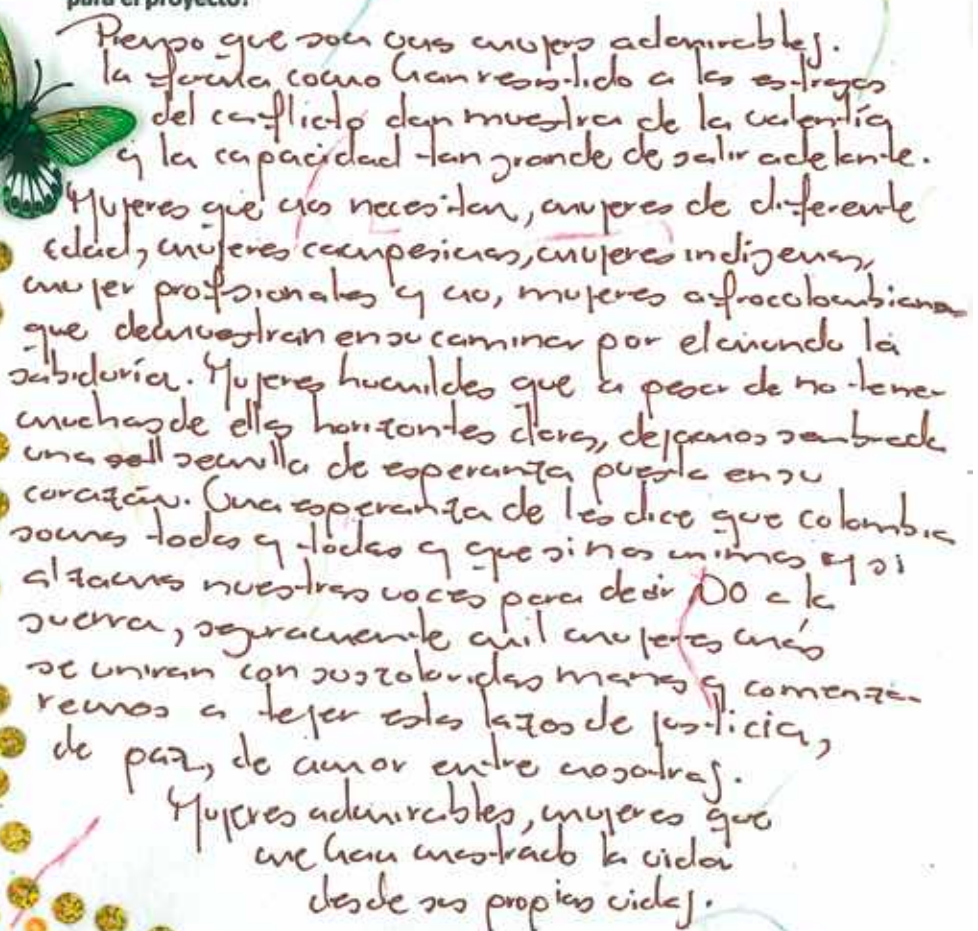 para el proyecto?
Pienso que son unas mujers admirables.
la forma como han resistido a los estragos
del conflicto dan muestra de la valentía
y la capacidad tan grande de salir adelante.
Mujeres que nos necesitan, mujeres de diferente
edad, mujeres campesinas, mujeres indígenas,
mujer profsionales y no, mujeres afrocolombianas
que demuestran en su caminar por el mundo la
sabiduría. Mujeres humildes que a pesar de no tener
muchas de ellas horizontes claros, dejamos sembrada
una semilla de esperanza puesta en su
corazón. Una esperanza de les dice que colombia
somos todos y todas y que si nos unimos y si
alzamos nuestras voces para decir NO a la
guerra, seguramente mil mujeres más
se uniran con sus coloridas manos y comenza-
remos a tejer estos lazos de justicia,
de paz, de amor entre nosotras.
Mujeres admirables, mujeres que
me han mostrado la vida
desde sus propias vidas.